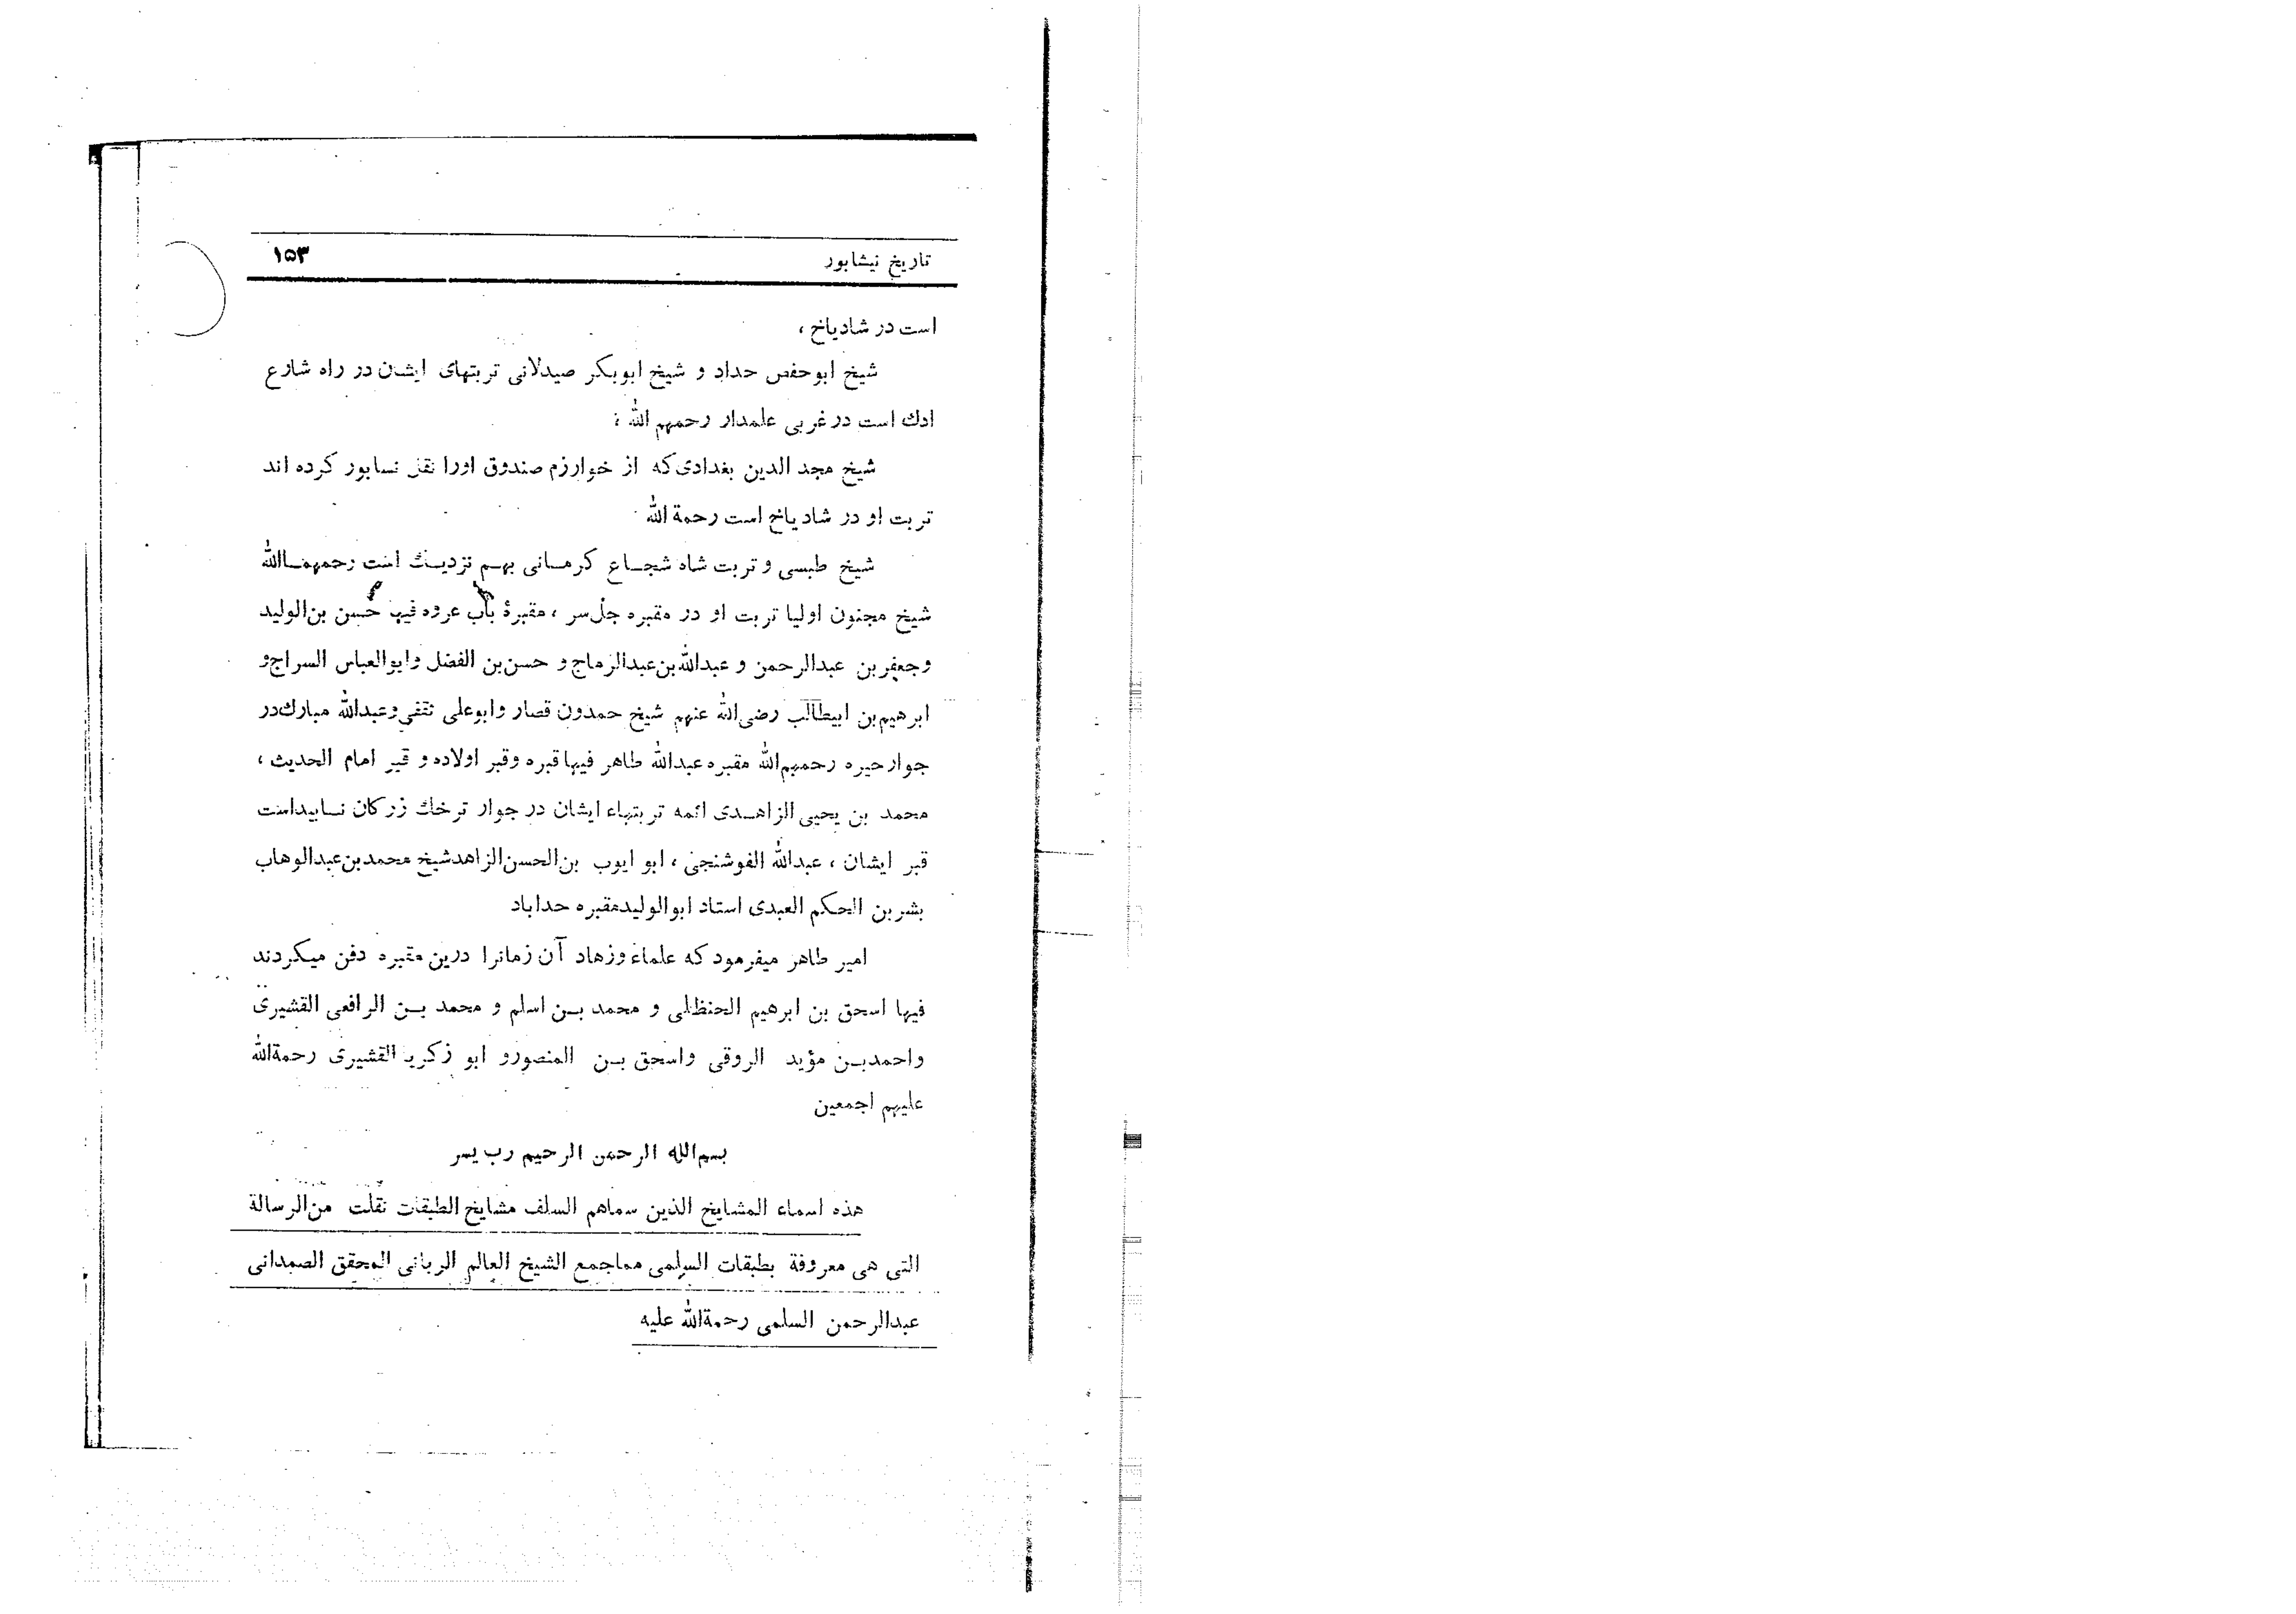 تاریخ نیشابور ۱۵۳
است در شادیاخ ،
شیخ ابوحفص حداد و شیخ ابوبکر صیدلانی تربتهای ایشان در راه شارع
ادك است در غربی علمدار رحمهم الله ؛
شیخ مجد الدین بغدادی که از خوارزم صندوق اورا نقل نسابور کرده اند
تربت او در شادیاخ است رحمة الله
شیخ طبسی و تربت شاه شجاع کرمانی بهم نزدیك است رحمهماالله
شیخ مجنون اولیا تربت او در مقبره جل‌سر ، مقبرهٔ باب عروه فیها حسن بن‌الولید
وجعفر بن عبدالرحمن و عبدالله‌بن‌عبدالرماج و حسن‌بن الفضل وابوالعباس السراج و
ابرهیم‌بن ابیطالب رضی‌الله عنهم شیخ حمدون قصار وابوعلی ثقفی وعبدالله مبارك در
جوار حیره رحمهم‌الله مقبره عبدالله طاهر فیها قبره وقبر اولاده و قبر امام الحدیث ،
محمد بن یحیی الزاهدی ائمه تربتهاء ایشان در جوار ترخك زرکان نسابیداست
قبر ایشان ، عبدالله الفوشنجی ، ابو ایوب بن‌الحسن‌الزاهدشیخ محمدبن‌عبدالوهاب
بشربن الحکم العبدی استاد ابوالولیدمقبره حداباد
امیر طاهر میفرمود که علماء وزهاد آن زمانرا درین مقبره دفن میکردند
فیها اسحق بن ابرهیم الحنظلی و محمد بن اسلم و محمد بن الرافعی القشیری
واحمدبن مؤید الروقی واسحق بن المنصورو ابو زکریا القشیری رحمةالله
علیهم اجمعین
بسم‌الله الرحمن الرحیم رب یسر
هذه اسماء المشایخ الذین سماهم السلف مشایخ الطبقات نقلت من‌الرسالة
التی هی معروفة بطبقات السلمی مماجمع الشیخ العالم الربانی المحقق الصمدانی
عبدالرحمن السلمی رحمةالله علیه